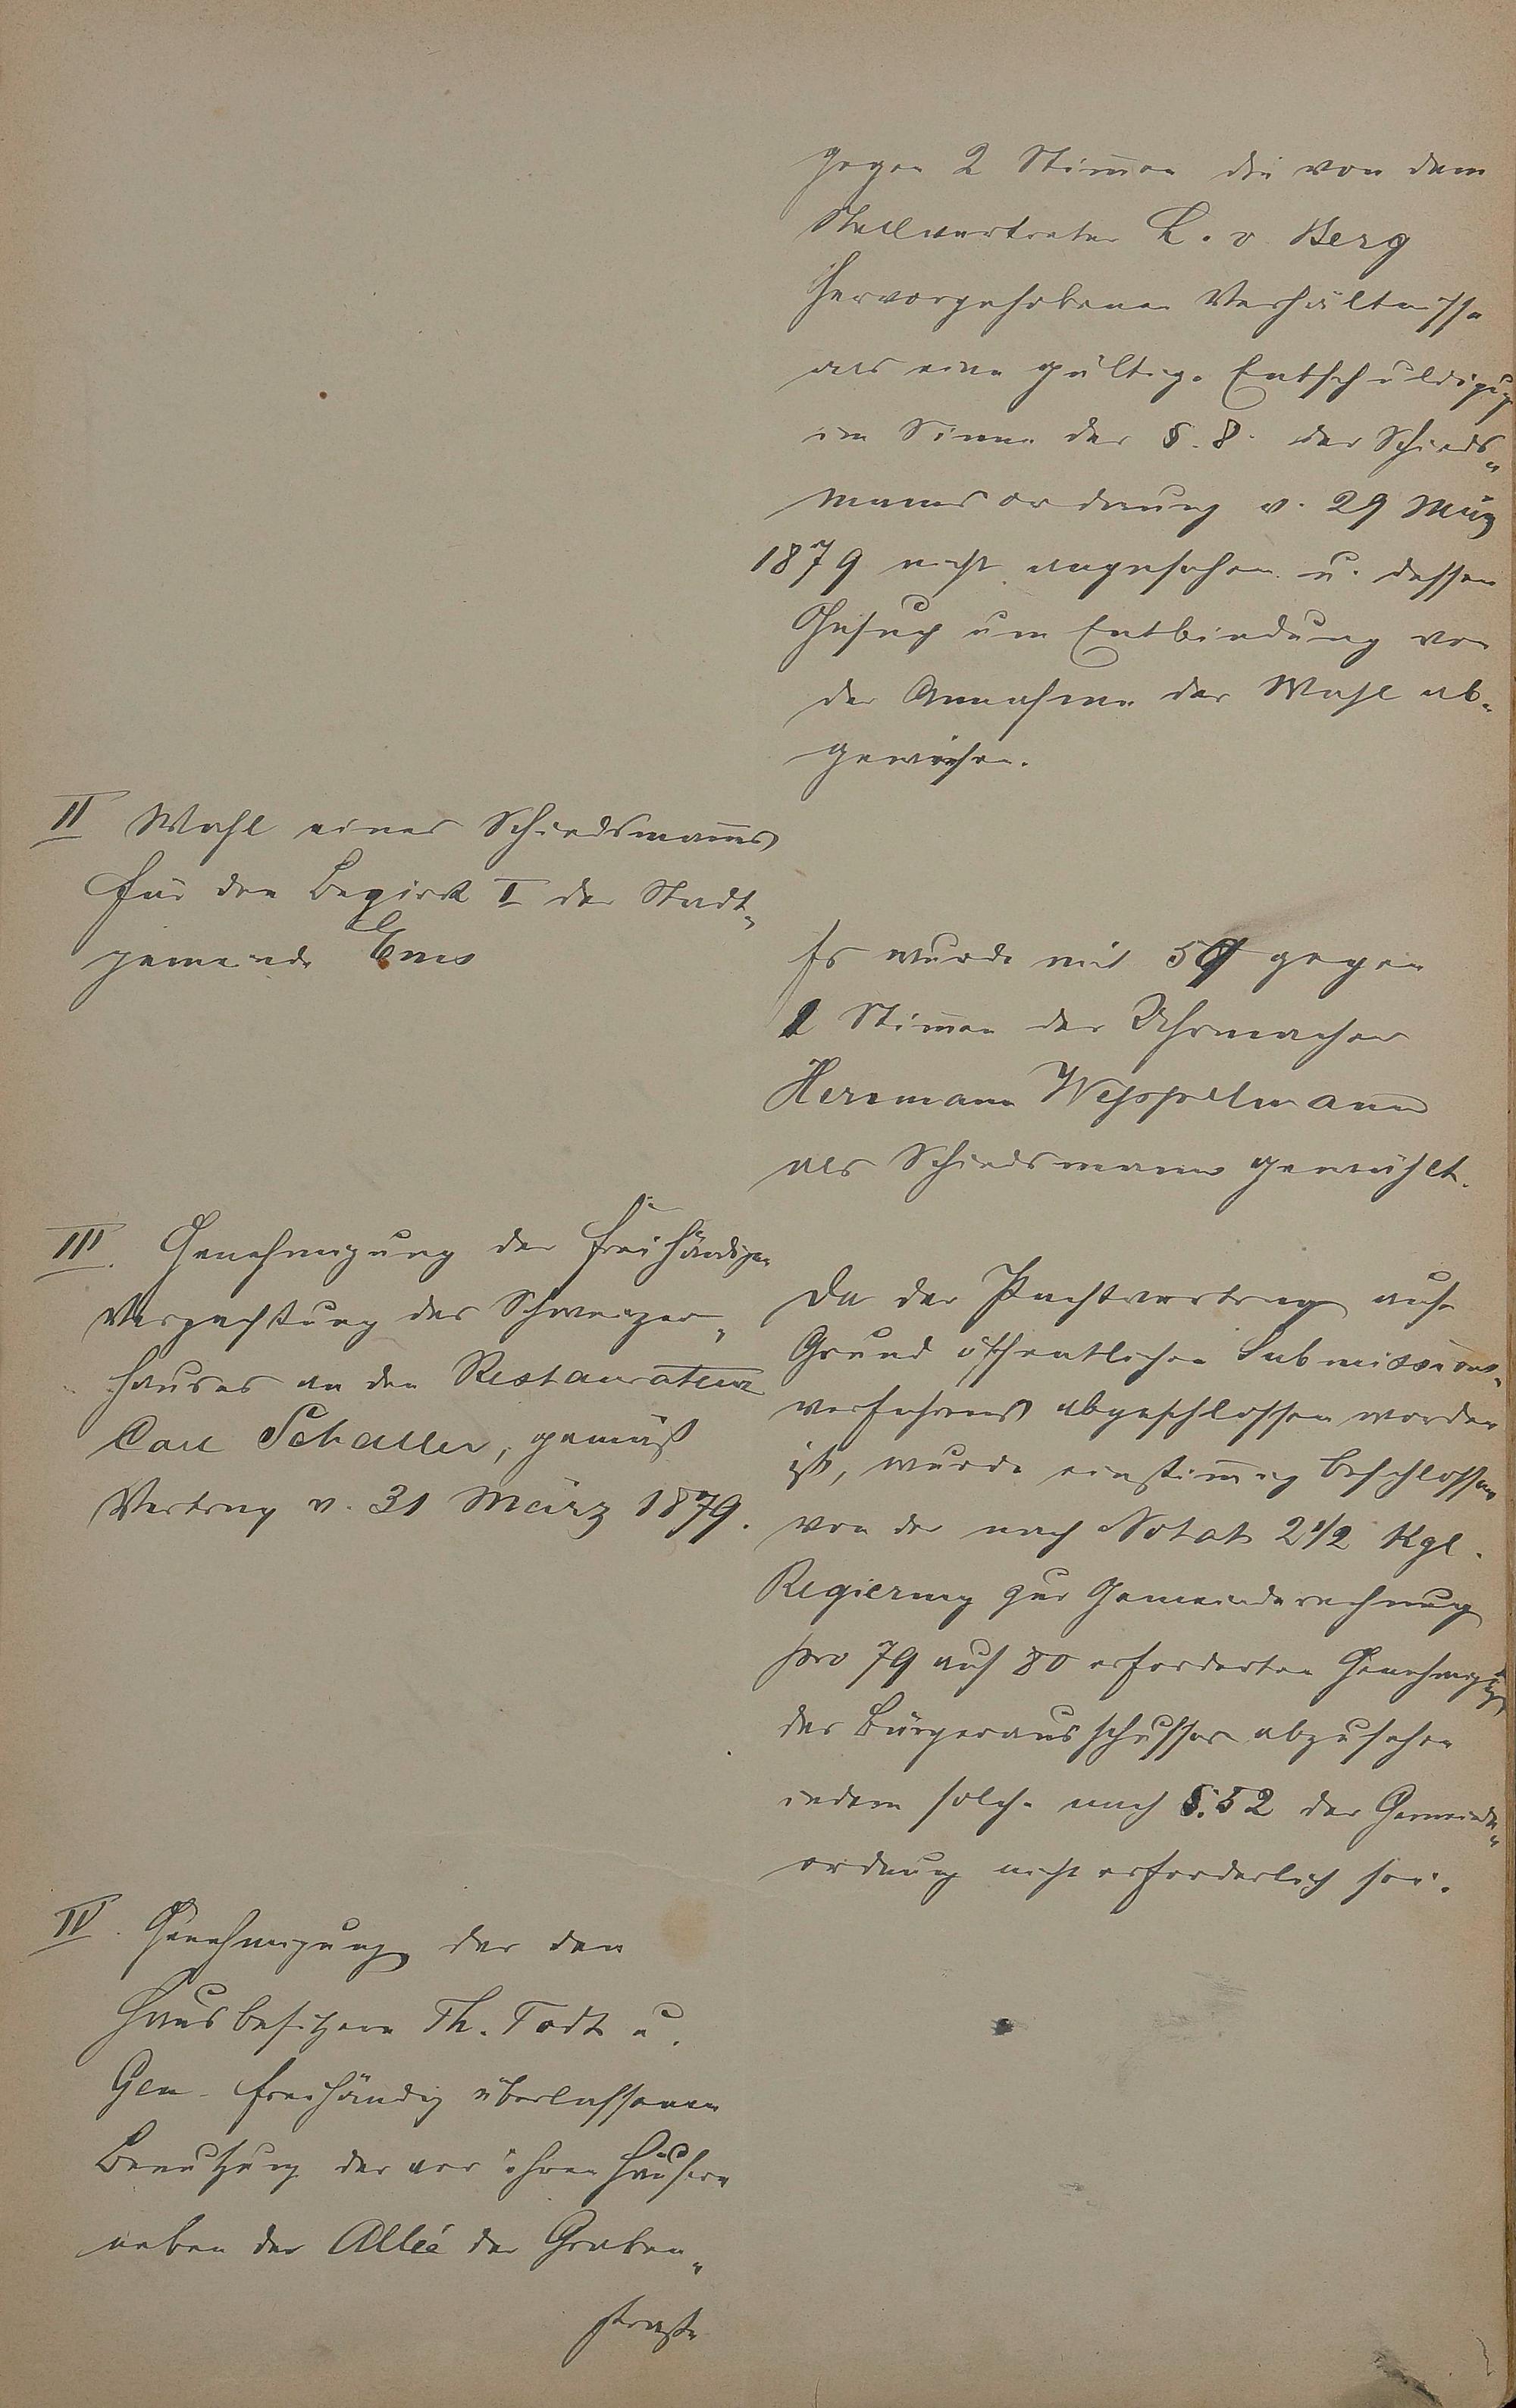 gegen 2 Stim̄en die von dem
Stellvertreter L. v. Berg
hervorgehobenen Verhältnisse
als eine gültige Entschuldigung
im Sinne des §. 8. der Schieds„
mannsordnung v. 29 März
1879 nicht angesehen u. dessen
Gesuch um Entbindung von
der Annahme der Wahl ab-
gewiesen.
II Wahl eines Schiedsman̄es
für den Bezirk I der Stadt„
gemeinde Ems
Es wurde mit 59 gegen
2 Stim̄en der Uhrmacher
Hermann Weppelmann
als Schiedsmann gewählt.
III. Genehmigung der freihändigen
Verpachtung des Schweizer„
hauses an den Restaurateur
Carl Schaller, gemäß
Vertrag v. 31 März 1879.
Da der Pachtvertrag auf
Grund öffentlichen Submissions„
verfahrens abgeschlossen worden
ist, wurde einstim̄ig beschlossen
von der nach Notat 2 1/2 Kgl.
Regierung zur Gemeinderechnung
pro 79 auf 80 erforderten Genehmigung
des Bürgerausschusses abzusehen
indem solche nach §. 52 der Gemeinde„
ordnung nicht erforderlich sei.
IV. Genehmigung der den
Hausbesitzern Th. Todt u.
Gen. freihändig überlassenen
Benutzung der vor ihren Häusern
neben der Allée der Graben„
straße